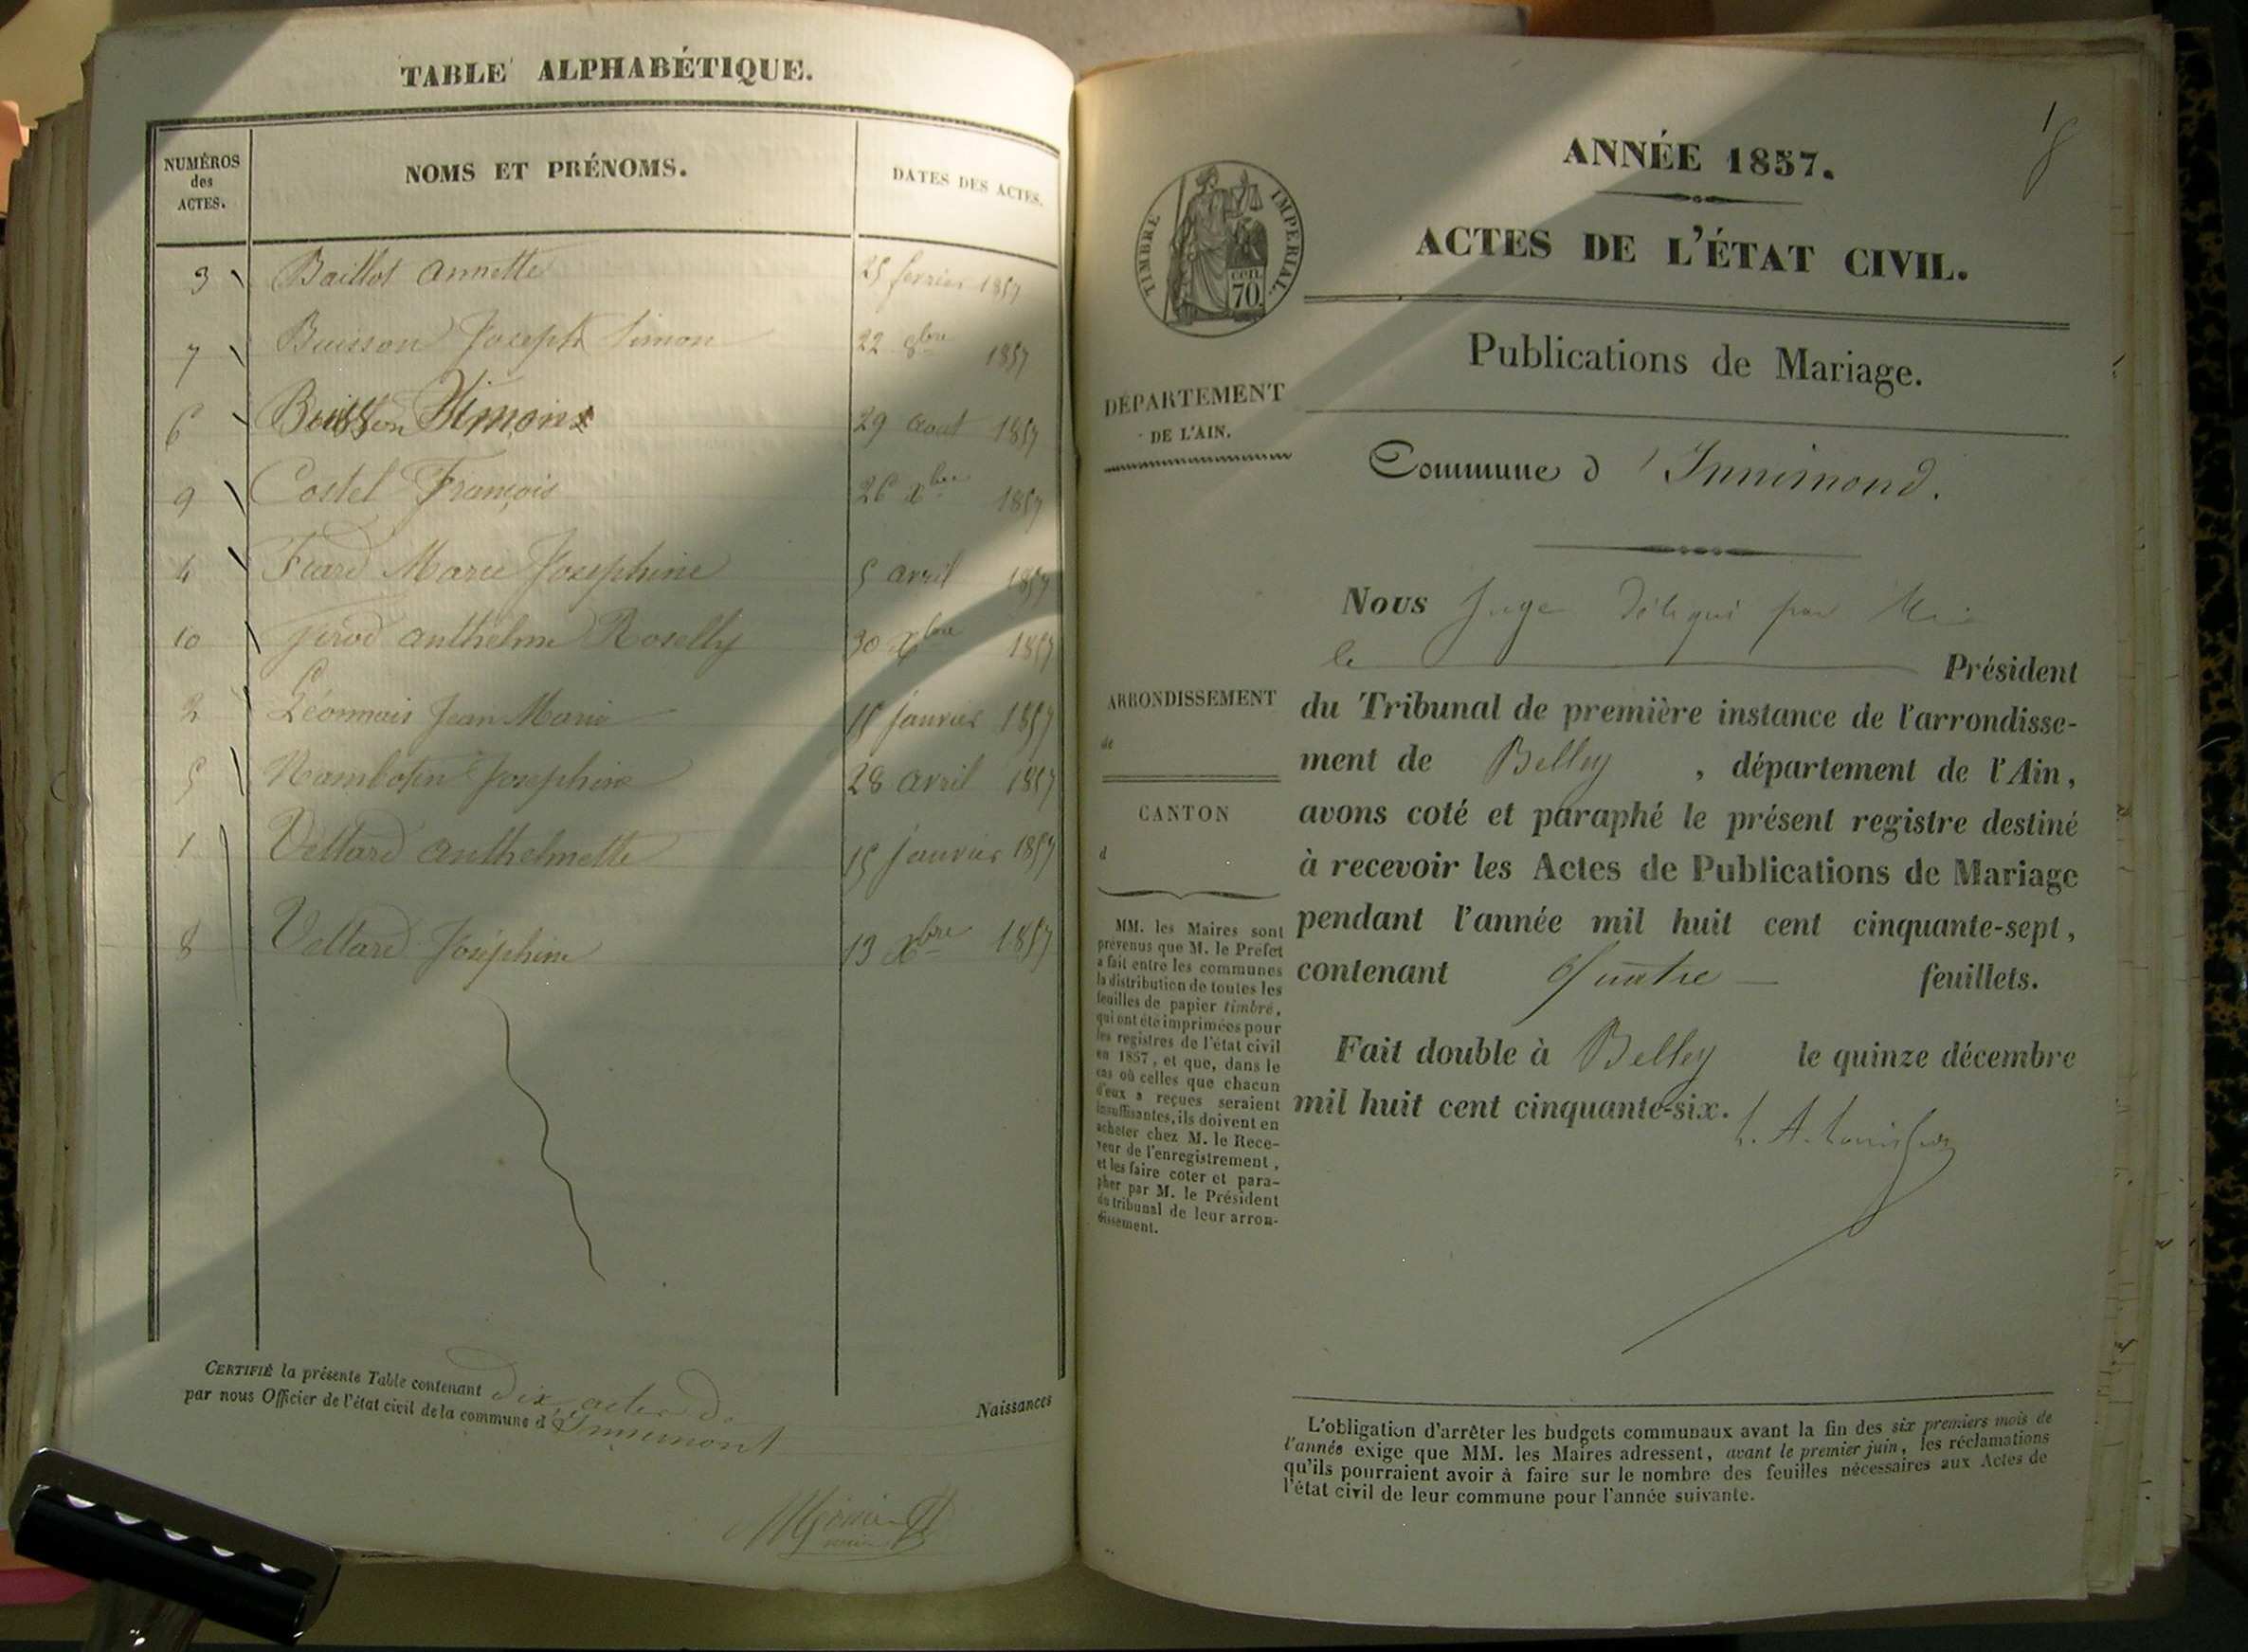 TABLE ALPHABÉTIQUE.
NUMÉROS des ACTES.
NOMS ET PRÉNOMS.
DATES DES ACTES.
3 Baillot Annette 25 fevrier 1857
7 Buisson Joseph Simon 22 8bre 1857
6 Buisson Simon 29 aout 1857
9 Costel François 26 Xbre 1857
4 Fiard Marie Josephine 5 avril 1857
10 Girod anthelme Roselly 30 Xbre 1857
2 Léonnais Jean Marie 15 janvier 1857
5 Josephine 28 avril 1857
1 Vettard anthelmette 15 janvier 1857
8 Vettard Joséphine 13 Xbre 1857
CERTIFIÉ la présente Table contenant dix actes de Naissances
par nous Officier de l'état civil de la commune d'Innimont
1
8
ANNÉE 1857.
ACTES DE L'ÉTAT CIVIL.
TIMBRE IMPERIAL.
cen.
70.
Publications de Mariage.
DÉPARTEMENT
DE L'AIN.
Commune d'Innimond.
Nous Juge délégué par
le Président
ARRONDISSEMENT
de
du Tribunal de première instance de l'arrondisse-
ment de Belley, département de l'Ain,
CANTON
d
avons coté et paraphé le présent registre destiné
à recevoir les Actes de Publications de Mariage
pendant l'année mil huit cent cinquante-sept,
contenant Quatre feuillets.
Fait double à Belley le quinze décembre
mil huit cent cinquante-six.
MM. les Maires sont
prévenus que M. le Préfet
a fait entre les communes
la distribution de toutes les
feuilles de papier timbré,
qui ont été imprimées pour
les registres de l'état civil
en 1857, et que, dans le
cas où celles que chacun
d'eux a reçues seraient
insuffisantes, ils doivent en
acheter chez M. le Rece-
veur de l'enregistrement,
et les faire coter et para-
pher par M. le Président
du tribunal de leur arron-
dissement.
L'obligation d'arrêter les budgets communaux avant la fin des six premiers mois de
l'année exige que MM. les Maires adressent, avant le premier juin, les réclamations
qu'ils pourraient avoir à faire sur le nombre des feuilles nécessaires aux Actes de
l'état civil de leur commune pour l'année suivante.